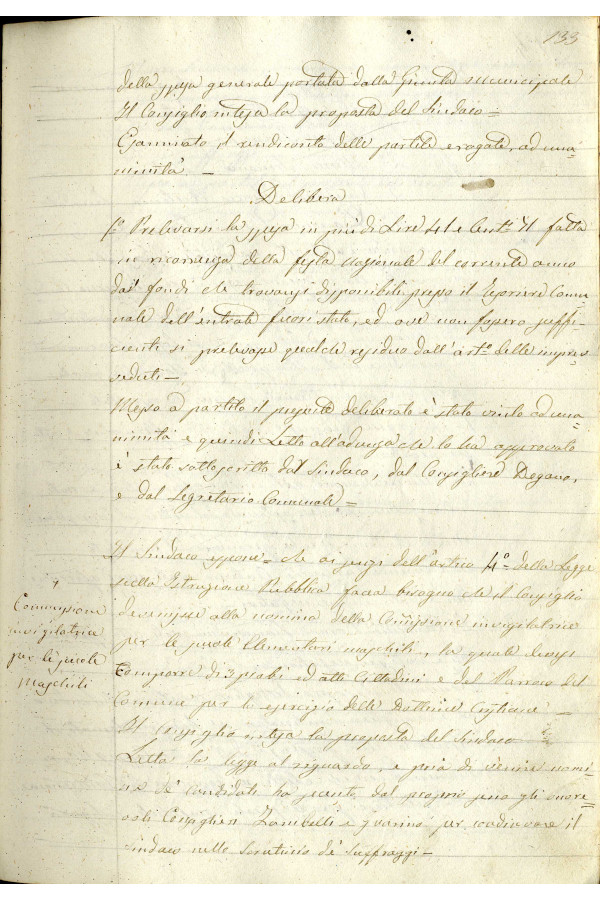 133
della spesa generale portata dalla Giunta Municipale
Il Consiglio intesa la proposta del Sindaco =
Esaminato il rendiconto delle partite erogate, ad una=
nimità —
Delibera
Prelevarsi la spesa in più di Lire e Cent.i fatta
in ricorrenza della festa Nazionale del corrente anno
dai fondi che trovansi disponibili presso il Comu=
nale dell'entrate fuori stato, ed ove non fossero suffi=
cienti si prelevasse qualche residuo dall'art.o delle impre=
vedute —
Messo a partito il deliberato è stato vinto ad una=
nimità e quindi Letto all'adunanza che lo ha approvato
è stato sottoscritto dal Sindaco, dal Consigliere Degano,
e dal Segretario Comunale =
Il Sindaco espone = che ai sensi dell'artico 4° della Legge
sulla Istruzione Pubblica facea bisogno che il Consiglio
alla nomina della Commissione invigilatrice
per le scuole Elementari maschili, la quale
Comporre di ed atti Cittadini e dal Parroco del
Comune per lo esercizio delle Dottrine —
Il Consiglio intesa la proposta del Sindaco
Letta la legge al riguardo, e pria di venire nomi
dè candidati ha dal proprio seno gli onore=
voli Consiglieri Zambelli e Guarino per coadiuvare il
Sindaco nello scrutinio dè suffraggi —
Commissione
invigilatrice
per le scuole
Maschili